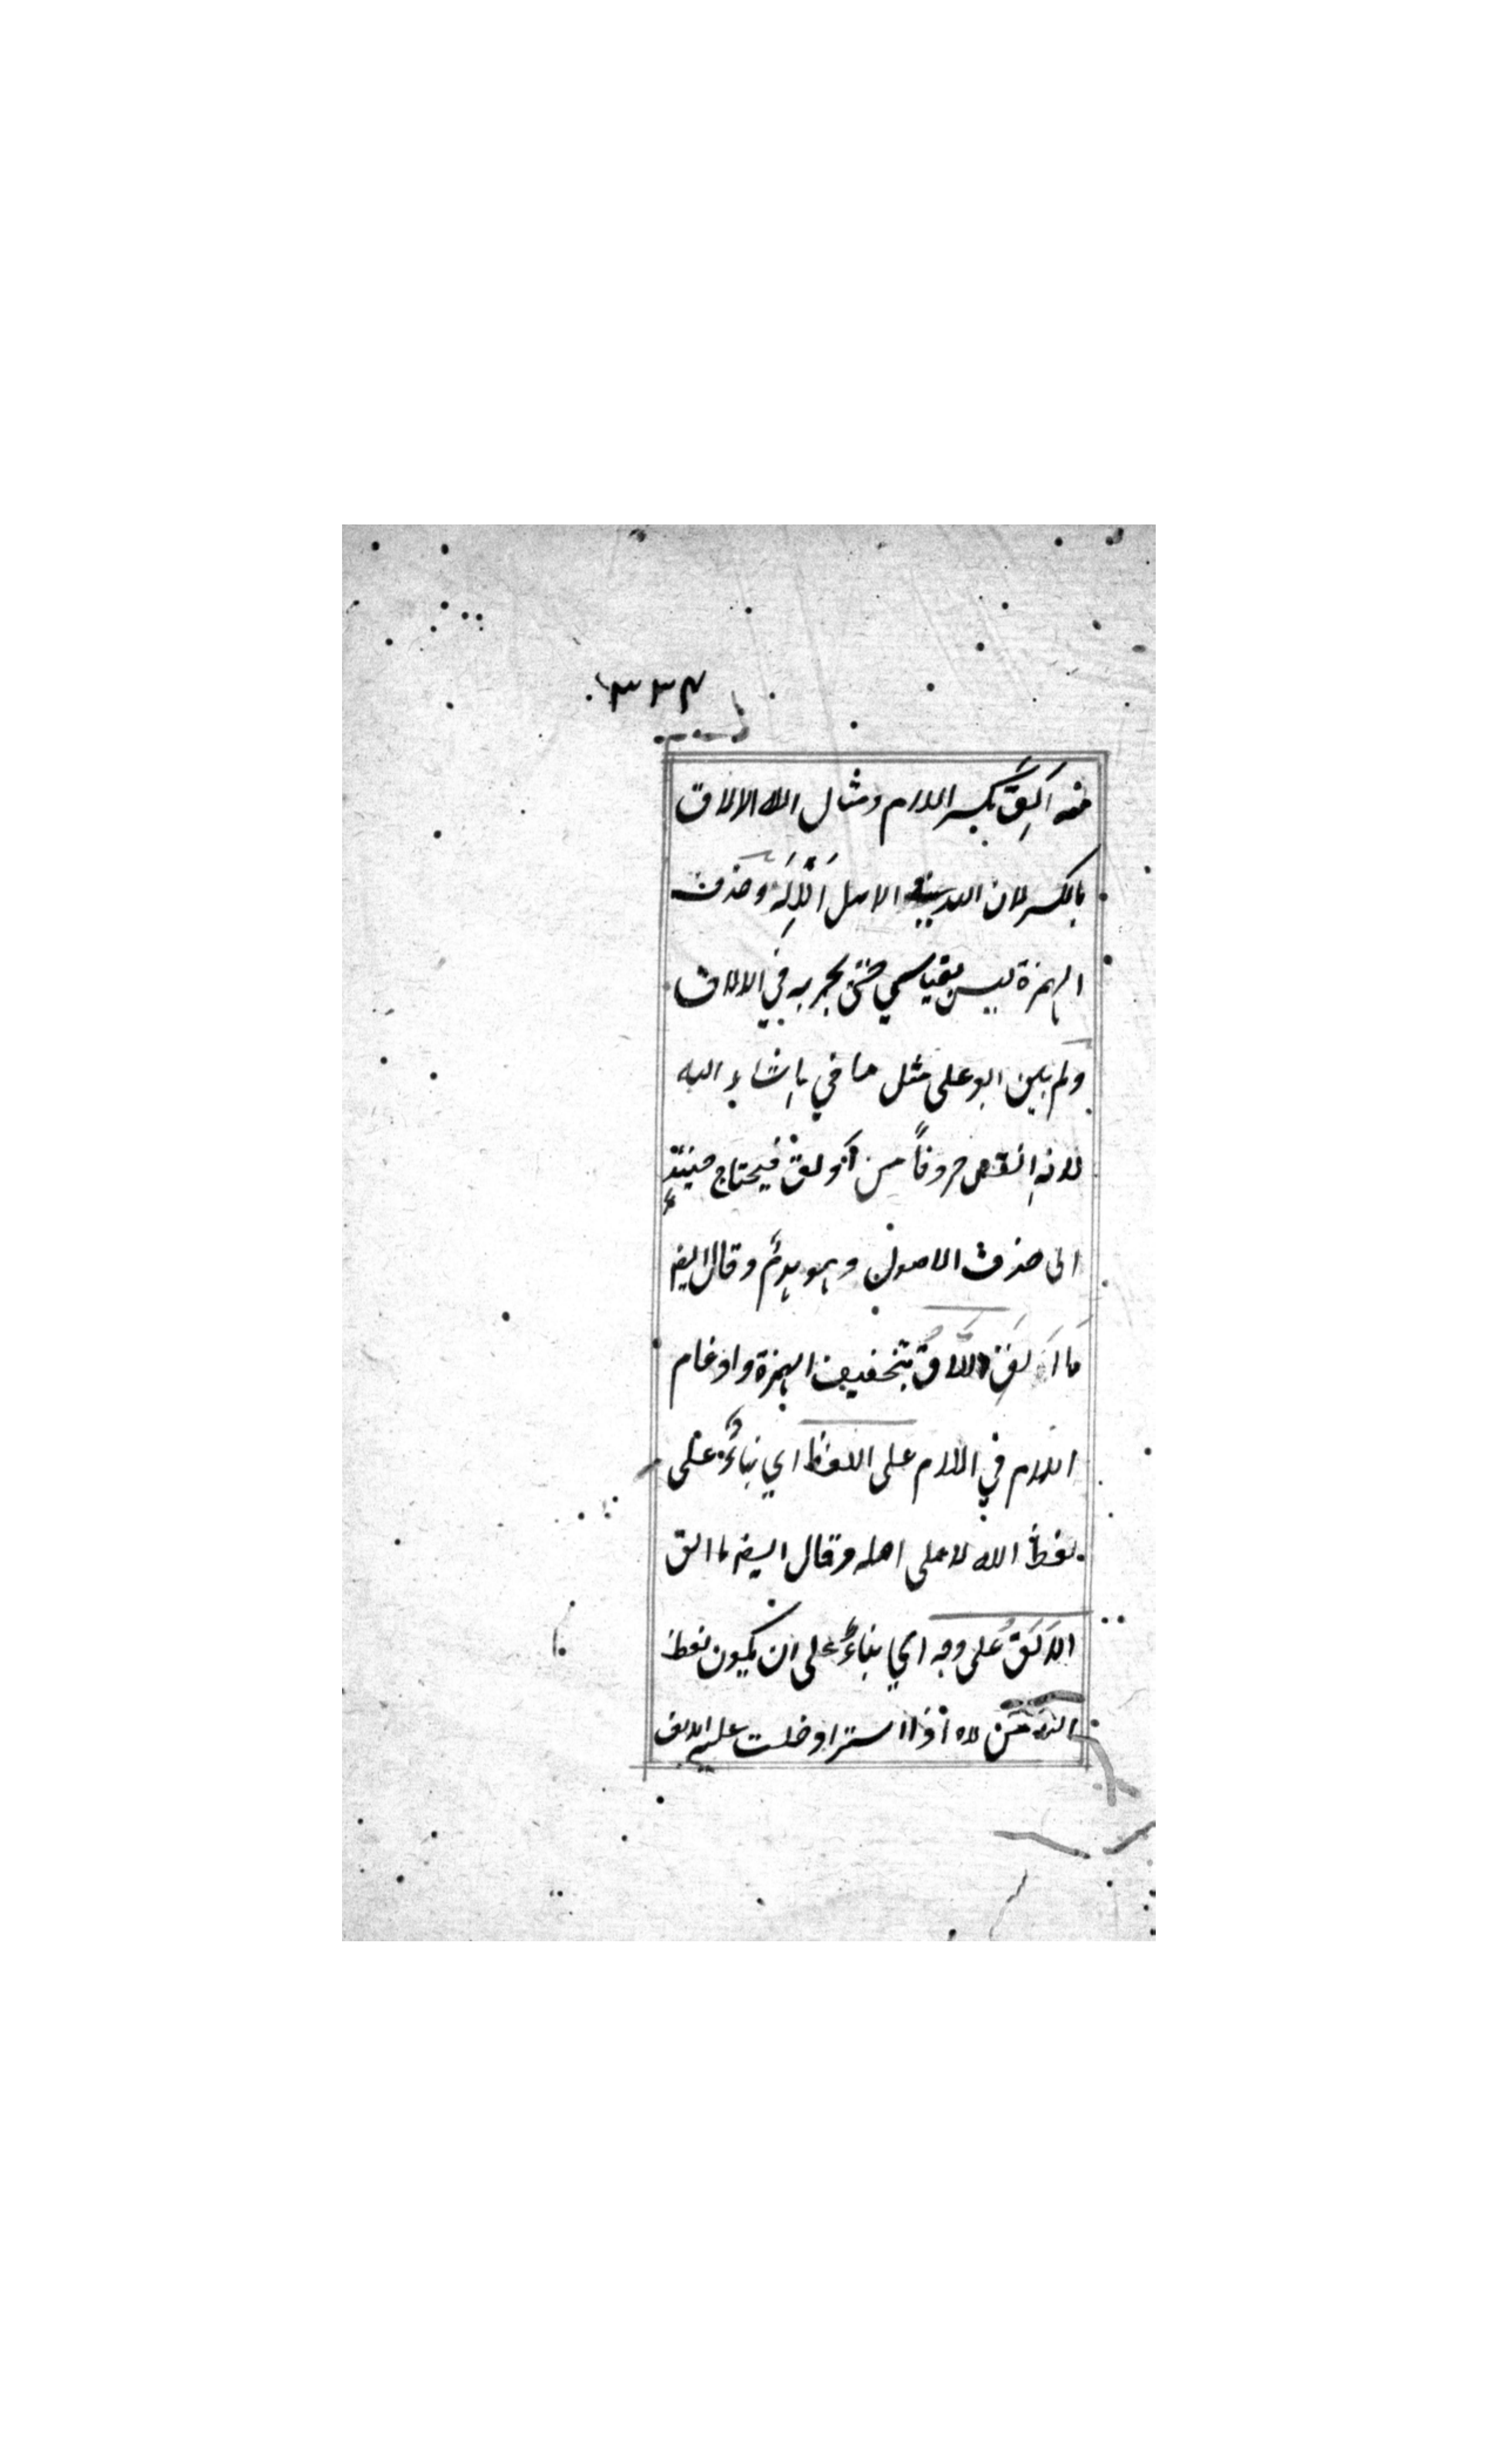 ٣٣٤
منه اَلِقَّ بكسر اللام ومثال الله الالاق
بالكسر لان الاصل اَلْاِلَهُ وحذف
الهمزة ليس بقياسي حتى يجر به في الالاق
ولم يبين ابو علي مثل ما في باِنشاءِ الله
لانه من اَوْلق فيحتاج حينئذٍ
الى حذف الاصول وهو وقال ايضا
مَا اَلَّاقُ بتخفيف الهمزة وادغام
اللام في اللام على اللفظ اي بناءً على
لفظ الله لا على اصله وقال ايضا ما الق
على وجه اي بناءً على ان يكون لفظ
من لاه اذا استتر ادخلت عليه الالف